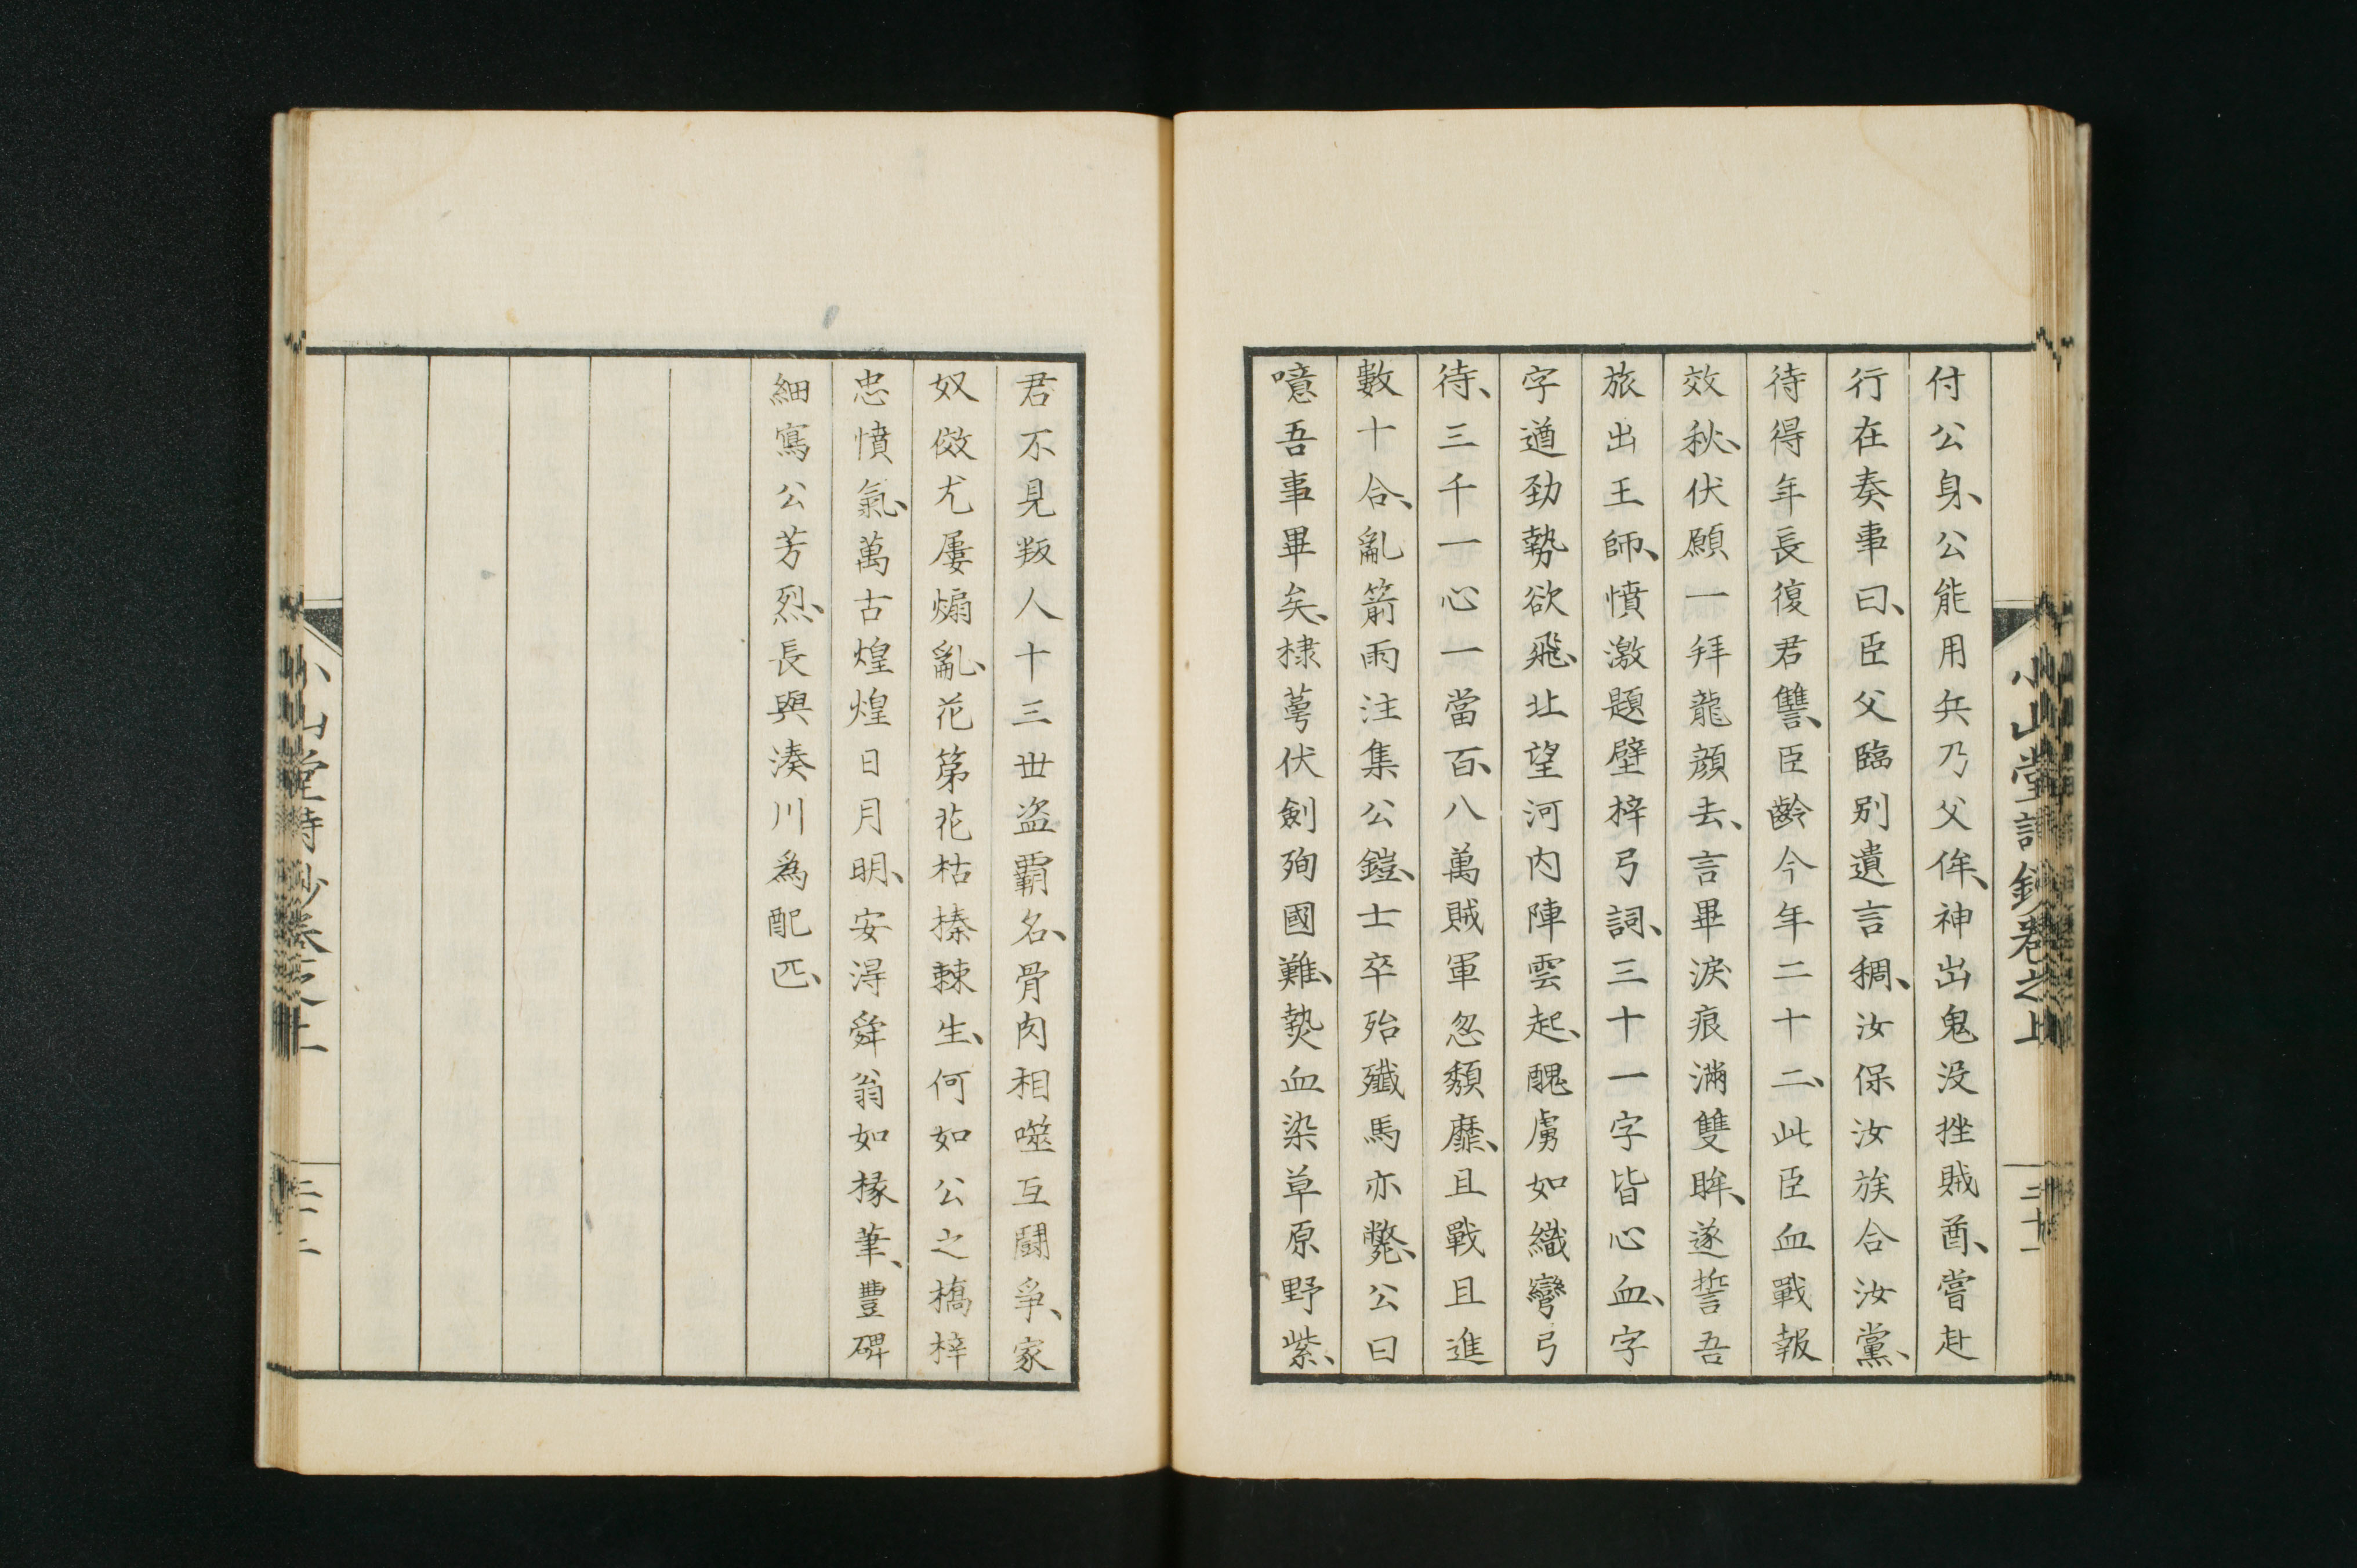 小山堂詩鈔卷之上
三十一
付公身、公能用兵乃父侔、神出鬼没挫賊酋、嘗赴
行在奏事曰、臣父臨別遺言稠、汝保汝族合汝黨、
待得年長復君讐、臣齡今年二十二、此臣血戰報
效秋、伏願一拜龍顔去、言畢淚痕滿雙眸、遂誓吾
旅出王師、憤激題壁梓弓詞、三十一字皆心血、字
字遒勁勢欲飛、北望河内陣雲起、醜虜如織彎弓
待、三千一心一當百、八萬賊軍忽頽靡、且戰且進
數十合、亂箭雨注集公鎧、士卒殆殲馬亦斃、公曰
噫吾事畢矣、棣萼伏劍殉國難、熱血染草原野紫、
君不見叛人十三世盜霸名、骨肉相噬互鬪爭、家
奴傚尤屢煽亂、花第花枯榛棘生、何如公之橋梓
忠憤氣、萬古煌煌日月明、安淂舜翁如椽筆、豐碑
細寫公芳烈、長與湊川為配匹、
小山堂詩鈔卷之上